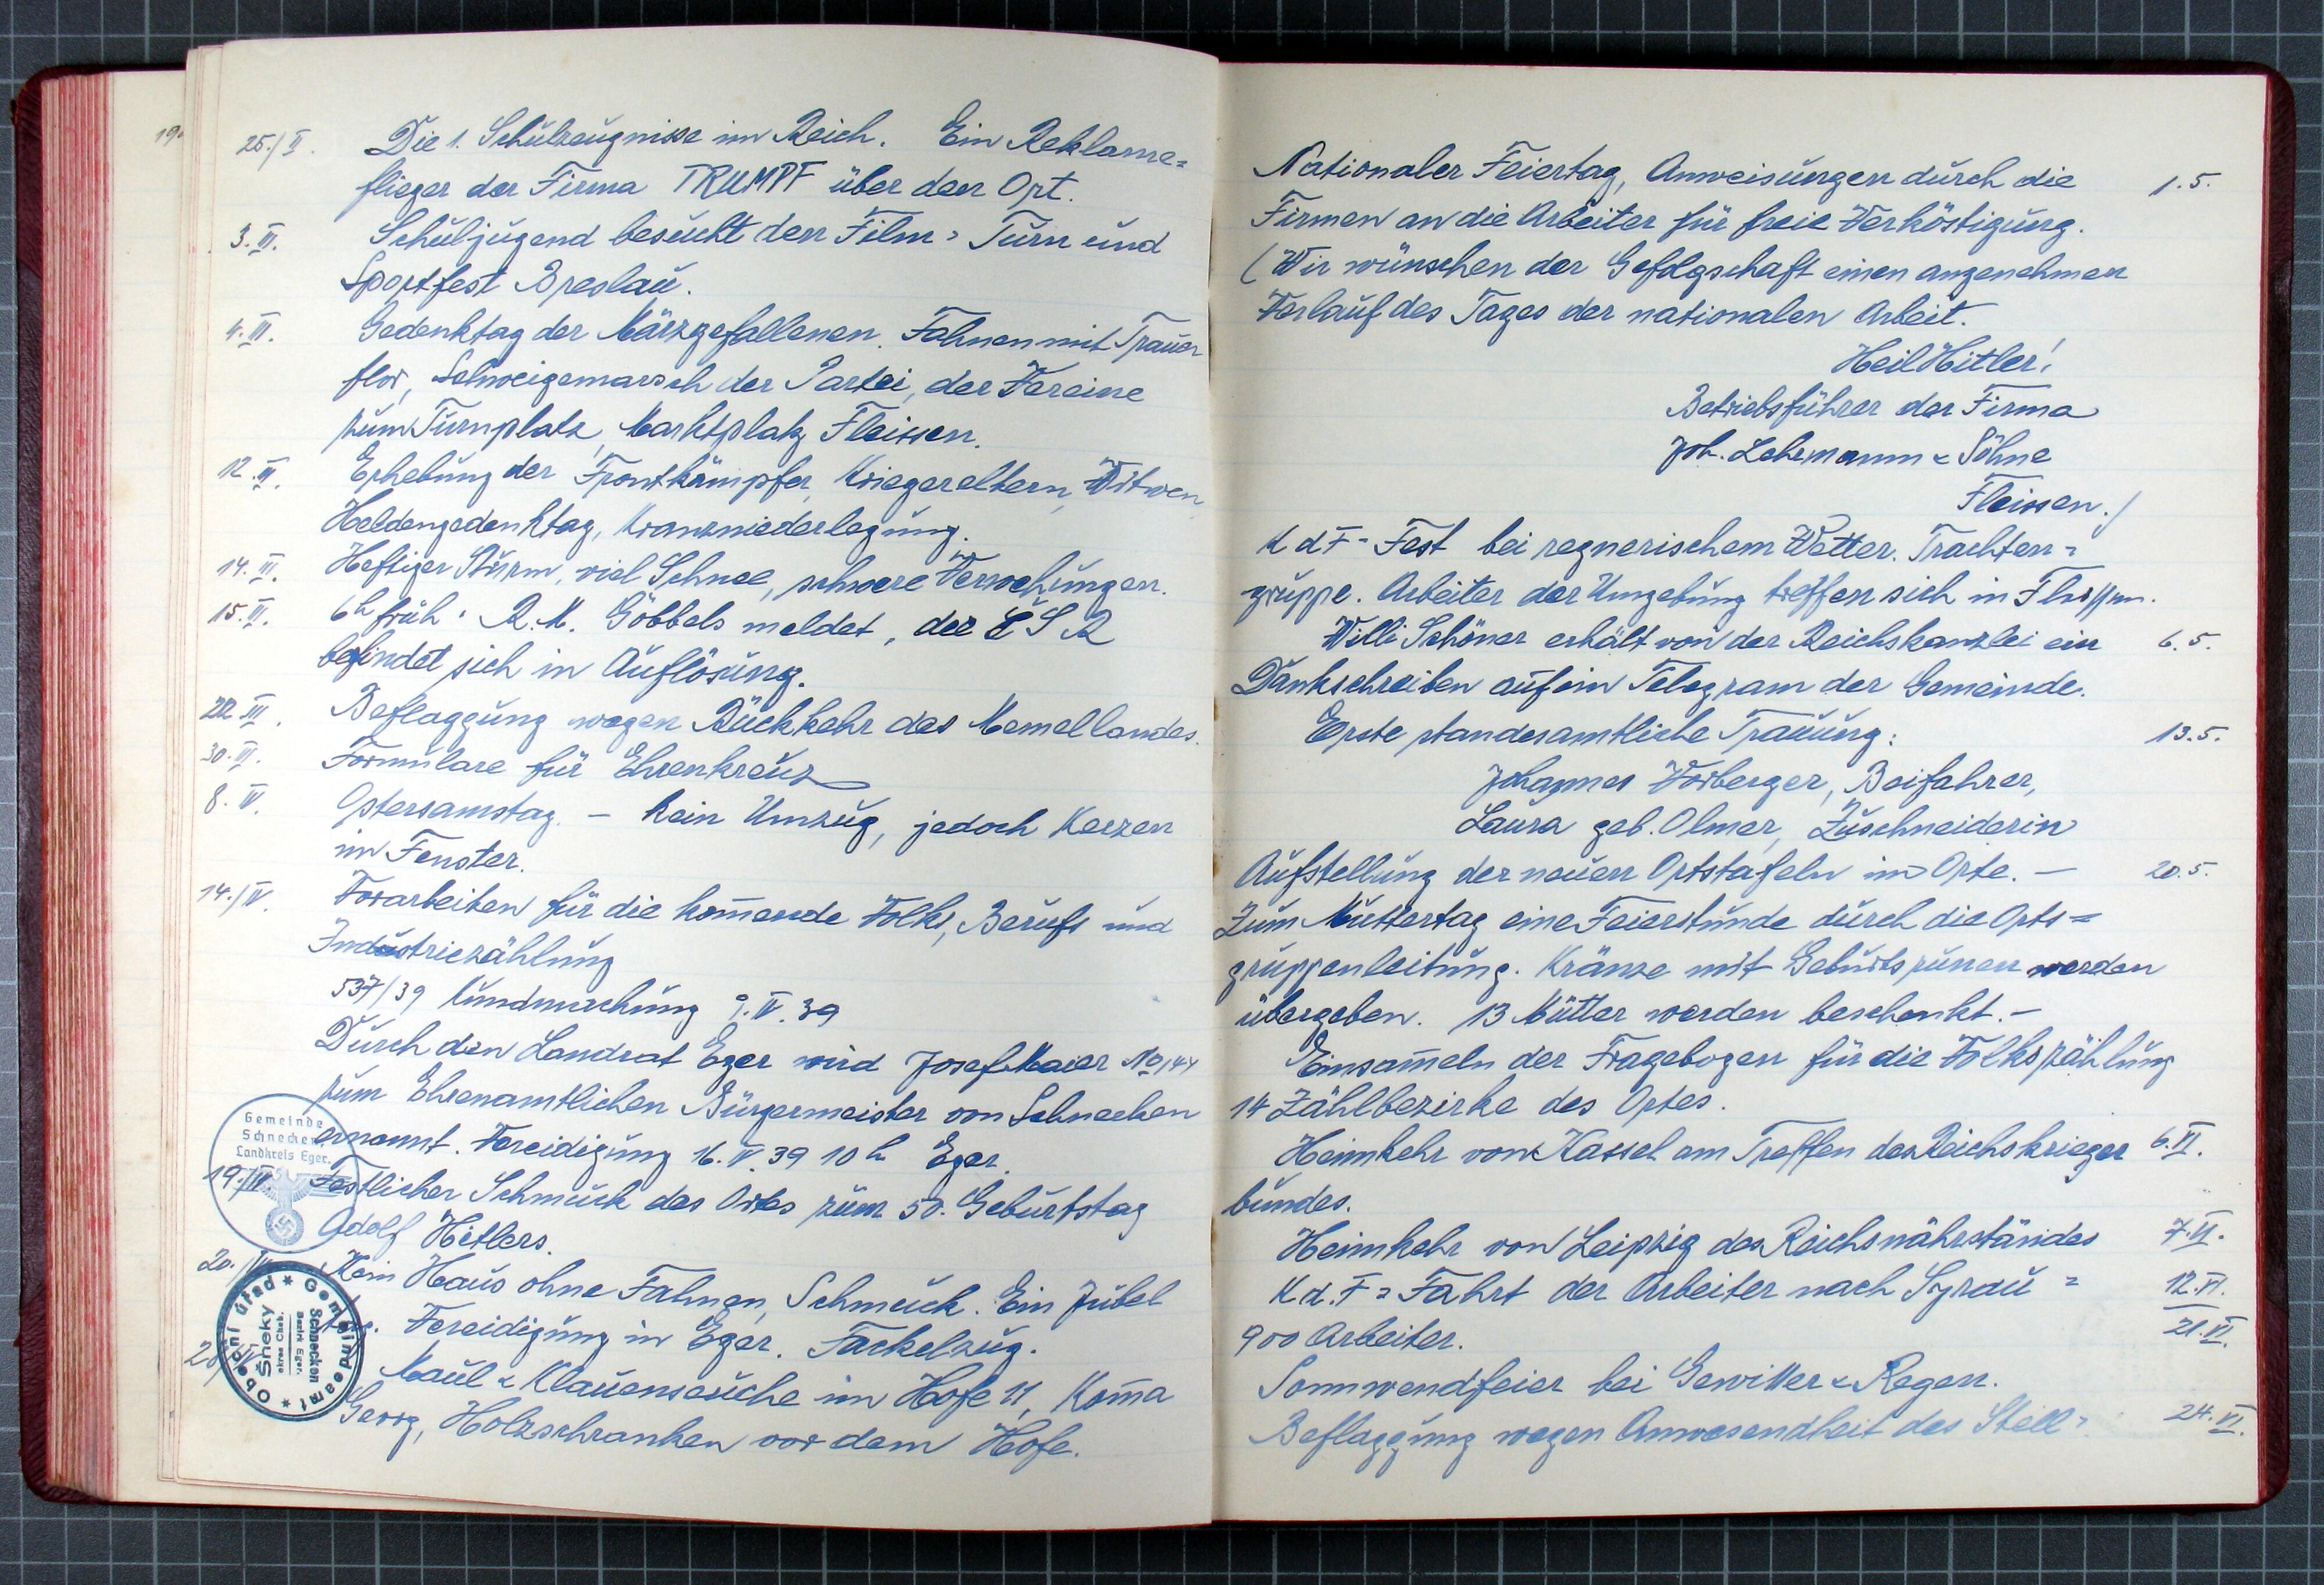 19
25./II. Die 1. Schulzeugnisse im Reich. Ein Reklame=
flieger der Firma TRUMPF über den Ort.
3. III. Schuljugend besucht den Film: Turn und
Sportfest Breslau.
4. III. Gedenktag der Märzgefallenen. Fahnen mit Trauer
flor, Schweigemarsch der Partei, der Vereine
zum Turnplatz, Marktplatz Fleissen.
12. III. Erhebung der Frontkämpfer, Kriegereltern, Witwen
Heldengedenktag, Kranzniederlegung.
14. III. Heftiger Sturm, viel Schnee, schwere Verwehungen.
15. III. 6h früh: R.M. Göbbels meldet, der ČSR
befindet sich in Auflösung.
22. III. Beflaggung wegen Rückkehr des Memellandes.
30. III. Formulare für Ehrenkreuz
8. IV. Ostersamstag. – Kein Umzug, jedoch Kerzen
im Fenster.
14./IV. Vorarbeiten für die kom̄ende Volks, Berufs und
Industriezählung
537/39 Kundmachung 9. IV. 39
Durch den Landrat Eger wird Josef Maier No 144
zum Ehrenamtlichen Bürgermeister von Schnecken
ernannt. Vereidigung 16. IV. 39 10h Eger.
Gemeinde
Schnecken,
Landkreis Eger.
19./IV. Festlicher Schmuck des Ortes zum 50. Geburtstag
Adolf Hitlers.
20./IV. Kein Haus ohne Fahnen, Schmuck. Ein Jubel
Vereidigung in Eger. Fackelzug.
Maul & Klauenseuche im Hofe 11, Kom̄a
Georg, Holzschranken vor dem Hofe.
Obecní úřad * Gemeindeamt *
Šneky
okres Cheb.
Schnecken
Bezirk Eger.
Nationaler Feiertag, Anweisungen durch die 1.5.
Firmen an die Arbeiter für freie Verköstigung.
(Wir wünschen der Gefolgschaft einen angenehmen
Verlauf des Tages der nationalen Arbeit.
Heil Hitler!
Betriebsführer der Firma
Joh. Lehrmann & Söhne
Fleissen.)
K d F = Fest bei regnerischem Wetter. Trachten=
gruppe. Arbeiter der Umgebung treffen sich in Fleissen.
Willi Schöner erhält von der Reichskanzlei ein 6.5.
Dankschreiben auf ein Telegram der Gemeinde.
Erste standesamtliche Trauung: 13.5.
Johannes Vorberger, Beifahrer,
Laura geb. Olmer, Zuschneiderin
Aufstellung der neuen Ortstafeln im Orte. – 20.5.
Zum Muttertag eine Feierstunde durch die Orts=
gruppenleitung. Kränze mit Geburtsrunen werden
übergeben. 13 Mütter werden beschenkt. –
Einsam̄eln der Fragebogen für die Volkszählung
14 Zählbezirke des Ortes.
Heimkehr von Kassel am Treffen des Reichskrieger 6. VI.
bundes.
Heimkehr von Leipzig des Reichsnährstandes 7. VI.
K.d.F = Fahrt der Arbeiter nach Syrau = 12. VI.
900 Arbeiter. 21. VI.
Sonnwendfeier bei Gewitter & Regen.
Beflaggung wegen Anwesendheit des Stell= 24. VI.